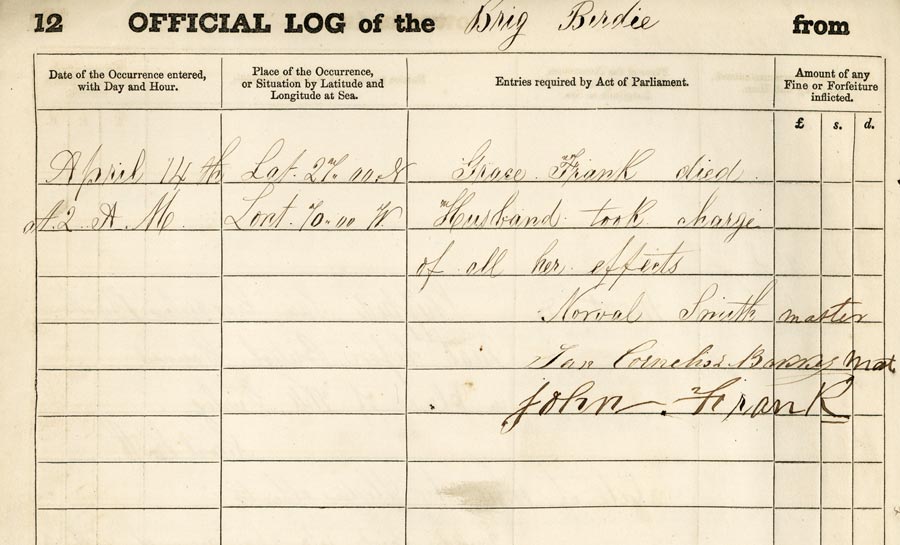 12 OFFICIAL LOG of the Brig Berdie from
Date of the Occurrence entered, with Day and Hour.
Place of the Occurrence, or Situation by Latitude and Longitude at Sea.
Entries required by Act of Parliament.
Amount of any Fine or Forfeiture inflicted.
£ s. d.
April 14 th Lat. 27.00 N Grace Frank died
at 2 A. M. 70.00 W Husband took charge
of all her effects
Norval Smith master
Cornelius Mat
John Frank